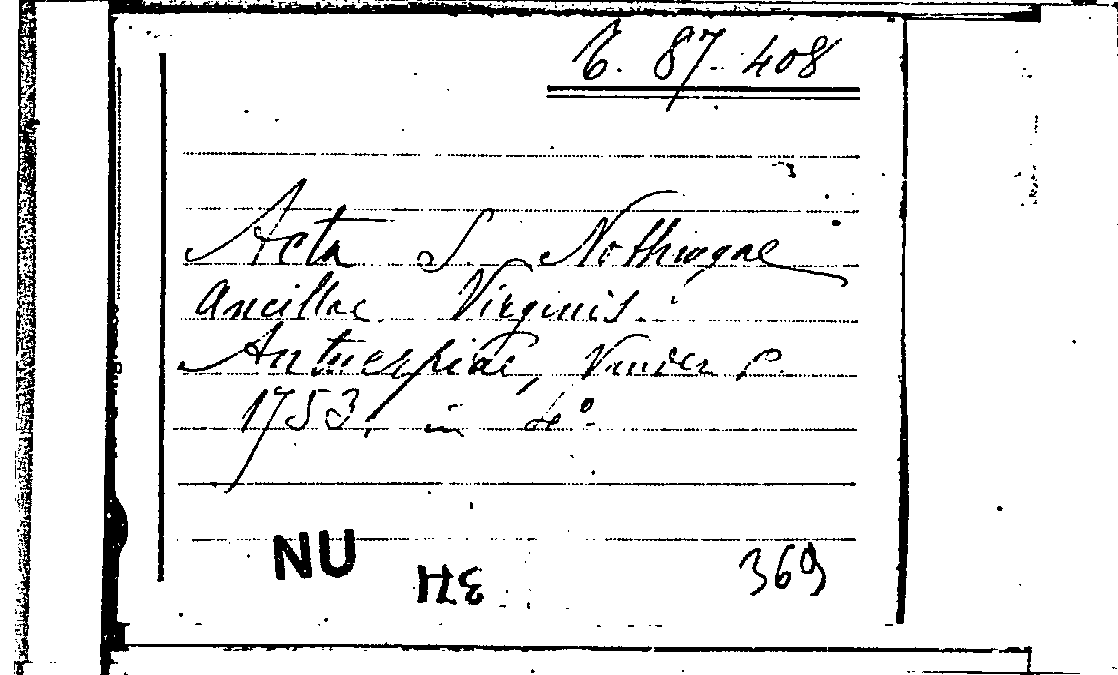 6. 87. 408
Acta S. Nothurgae
Ancillae Virginis.
Antuerpiae, Vander P.
1753. in 4°.
NU
371
369